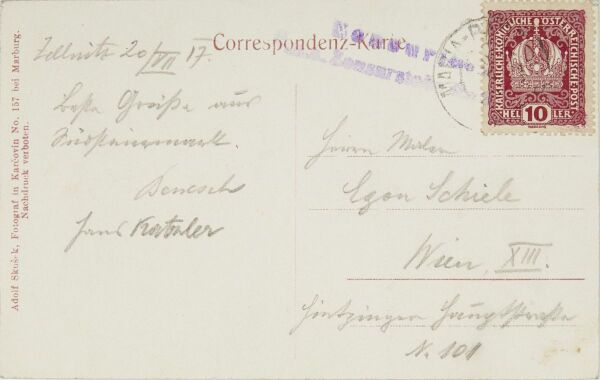 Correspondenz-Karte
KAISERLICHE KÖNIGLICHE ÖSTERREICHISCHE POST
HELLER
10
Zellnitz 20/VII 17.
Beste Grüße aus
Südsteiermark.
Benesch
Hans
Herrn Maler
Egon Schiele
Wien, XIII.
Hietzinger Hauptstraße
No 101
Adolf Fotograf in Karčovin No. 157 bei Marburg.
Nachdruck verboten.